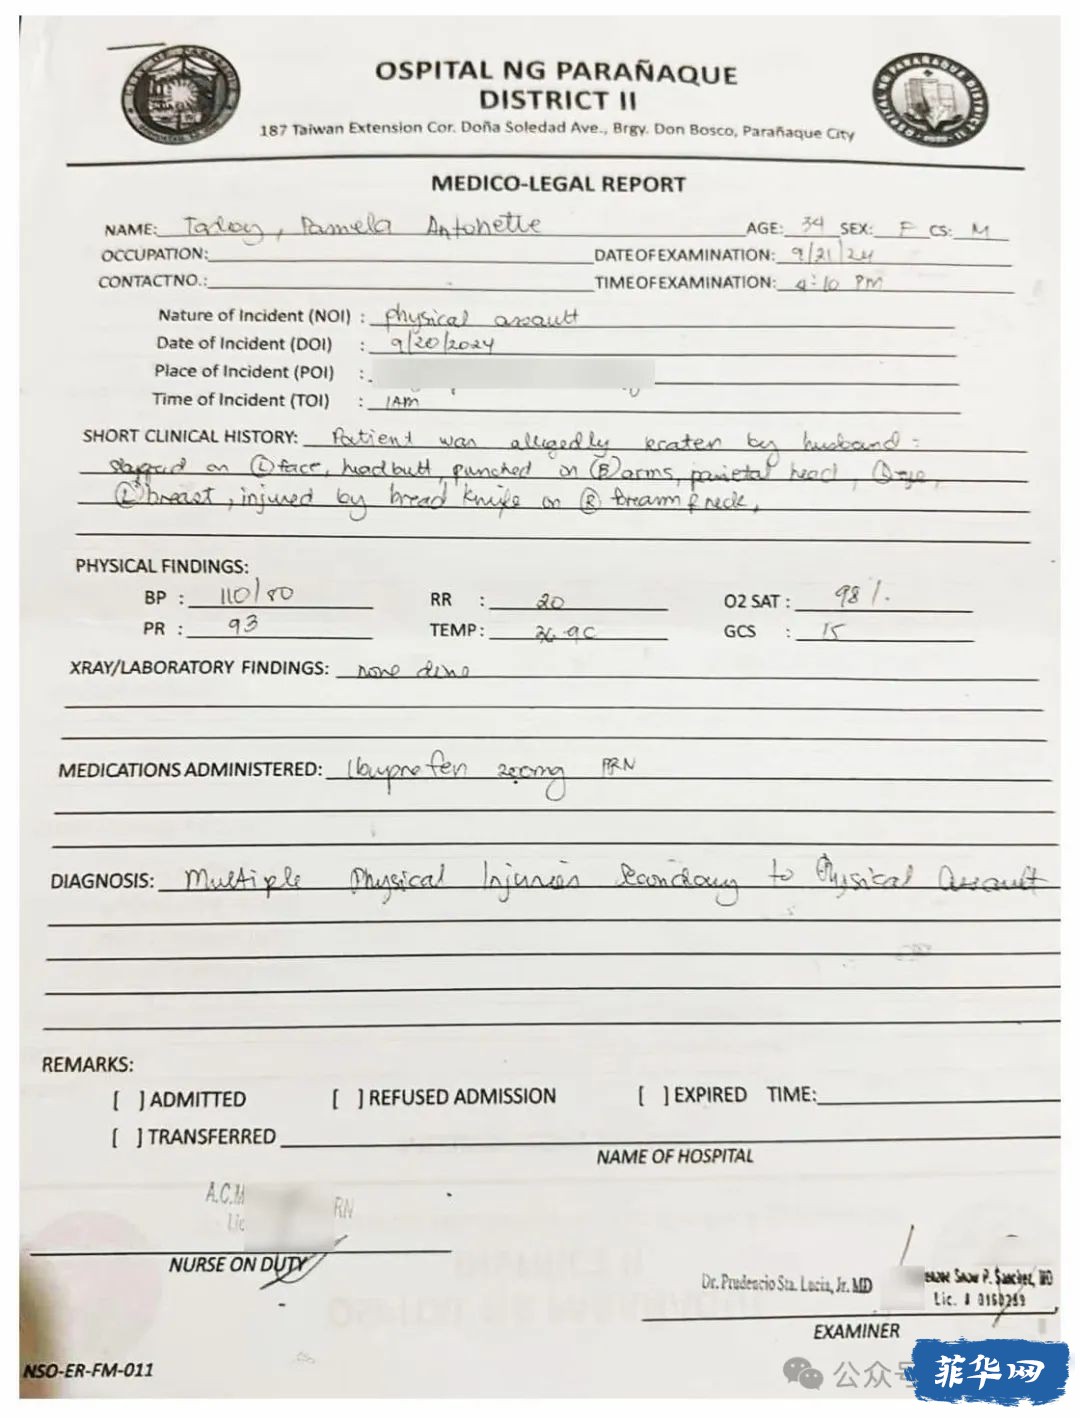 OSPITAL NG PARAÑAQUE
DISTRICT II
187 Taiwan Extension Cor. Doña Soledad Ave., Brgy. Don Bosco, Parañaque City
MEDICO-LEGAL REPORT
NAME: Pamela Antonette AGE: 34 SEX: F CS: M
OCCUPATION: DATE OF EXAMINATION: 9/21/24
CONTACT NO.: TIME OF EXAMINATION: 4:10 PM
Nature of Incident (NOI) : physical assault
Date of Incident (DOI) : 9/20/2024
Place of Incident (POI) :
Time of Incident (TOI) : 1AM
SHORT CLINICAL HISTORY: Patient was allegedly beaten by husband :
slapped on (L) face, headbutt, punched on (B) arms, parietal head, eye,
(L) breast, injured by bread knife on (R) forearm & neck,
PHYSICAL FINDINGS:
BP : 110/80 RR : 20 O2 SAT : 98%
PR : 93 TEMP: 36.9C GCS : 15
XRAY/LABORATORY FINDINGS: none done
MEDICATIONS ADMINISTERED: Ibuprofen 200mg PRN
DIAGNOSIS: Multiple Physical Injuries Secondary to Physical Assault
REMARKS:
[ ] ADMITTED [ ] REFUSED ADMISSION [ ] EXPIRED TIME:
[ ] TRANSFERRED
NAME OF HOSPITAL
A.C.M RN
Lic
NURSE ON DUTY
Dr. Prudencio Sta. Lucia, Jr. MD
Snow P. Sanchez, MD
Lic. # 0160259
EXAMINER
NSO-ER-FM-011
公众号
菲华网